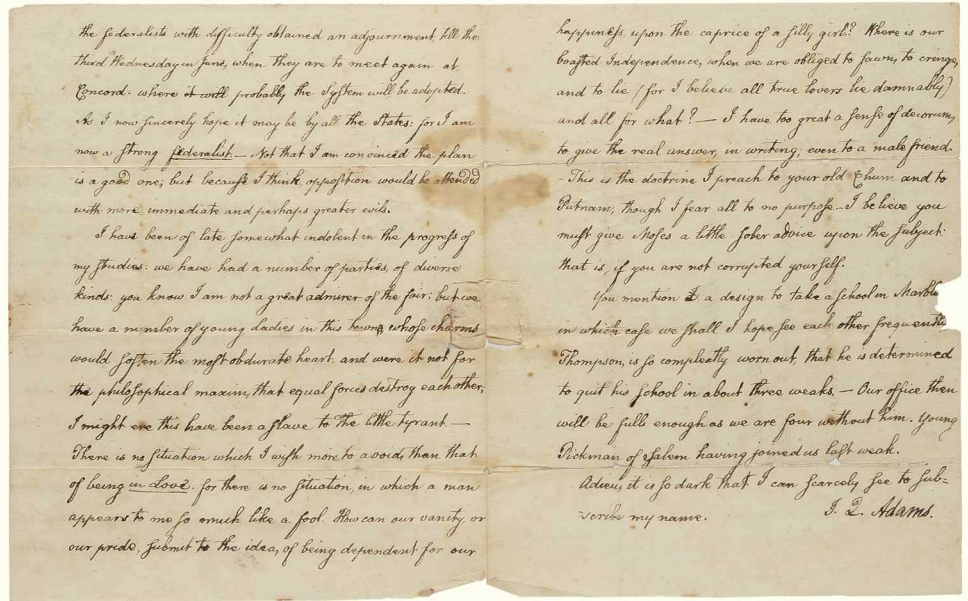 the federalists with difficulty obtained an adjournment, till the
third Wednesday in June, when they are to meet again at
Concord: where it will probably the System will be adopted.
As I now sincerely hope it may be by all the States: for I am
now a strong federalist.— Not that I am convinced the plan
is a good one; but because I think, opposition would be attended
with more immediate and perhaps greater evils.
I have been of late somewhat indolent in the progress of
my studies: we have had a number of parties, of diverse
kinds: you know I am not a great admirer of the fair: but we
have a number of young ladies in this town, whose charms
would soften the most obdurate heart, and were it not for
the philosophical maxim, that equal forces destroy each other,
I might ere this have been a slave to the little tyrant.—
There is no situation which I wish more to avoid, than that
of being in Love. for there is no situation, in which a man
appears to me so much like a fool. How can our vanity, or
our pride, submit to the idea, of being dependent for our
happiness, upon the caprice of a silly girl? Where is our
boasted Independence, when we are obliged to fawn, to cringe,
and to lie (for I believe all true lovers lie damnably)
and all for what? — I have too great a sense of decorum,
to give the real answer, in writing, even to a male friend.
- This is the doctrine I preach to your old Chum and to
Putnam, though I fear all to no purpose— I believe you
must give Moses a little sober advice upon the subject:
that is, if you are not corrupted yourself.
You mention a design to take a school in Marble
in which case we shall I hope see each other frequently
Thompson, is so compleatly worn out, that he is determined
to quit his school in about three weaks. — Our office then
will be full enough as we are four without him. Young
Pickman of Salem having joined us last weak.
Adieu, it is so dark that I can scarcely see to sub=
=scribe my name. J. Q. Adams.